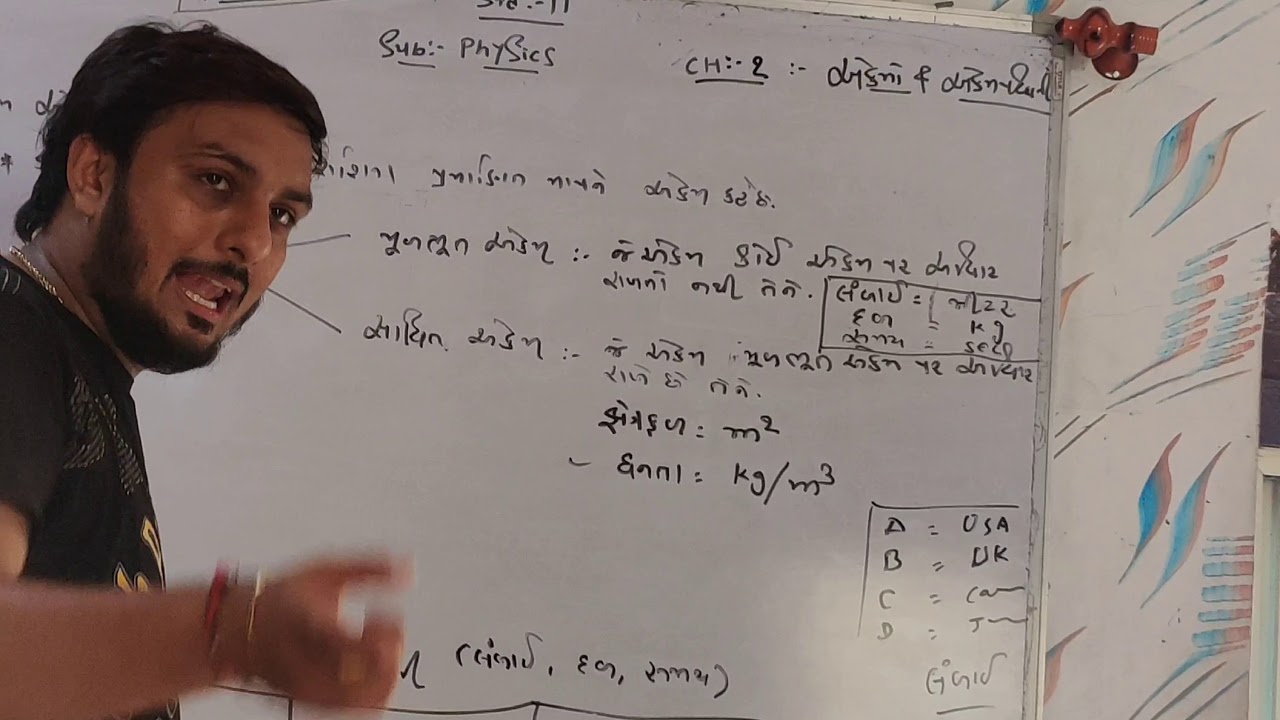 Std:-11
Sub:- Physics
CH:- 2 :- એકમો & એકમપદ્ધતિ
રાશિના પ્રમાણિત માપને એકમ કહે છે.
મૂળભૂત એકમ :- જે એકમ કોઈ એકમ પર આધાર
રાખતો નથી તેને.
લંબાઈ = મીટર
દળ = kg
સમય =
સાધિત એકમ :- જે એકમ મૂળભૂત એકમ પર આધાર
રાખે છે તેને.
ક્ષેત્રફળ = m²
ઘનતા = kg/m³
A = USA
B = UK
C = Can
D =
(લંબાઈ, દળ, સમય)
લંબાઈ